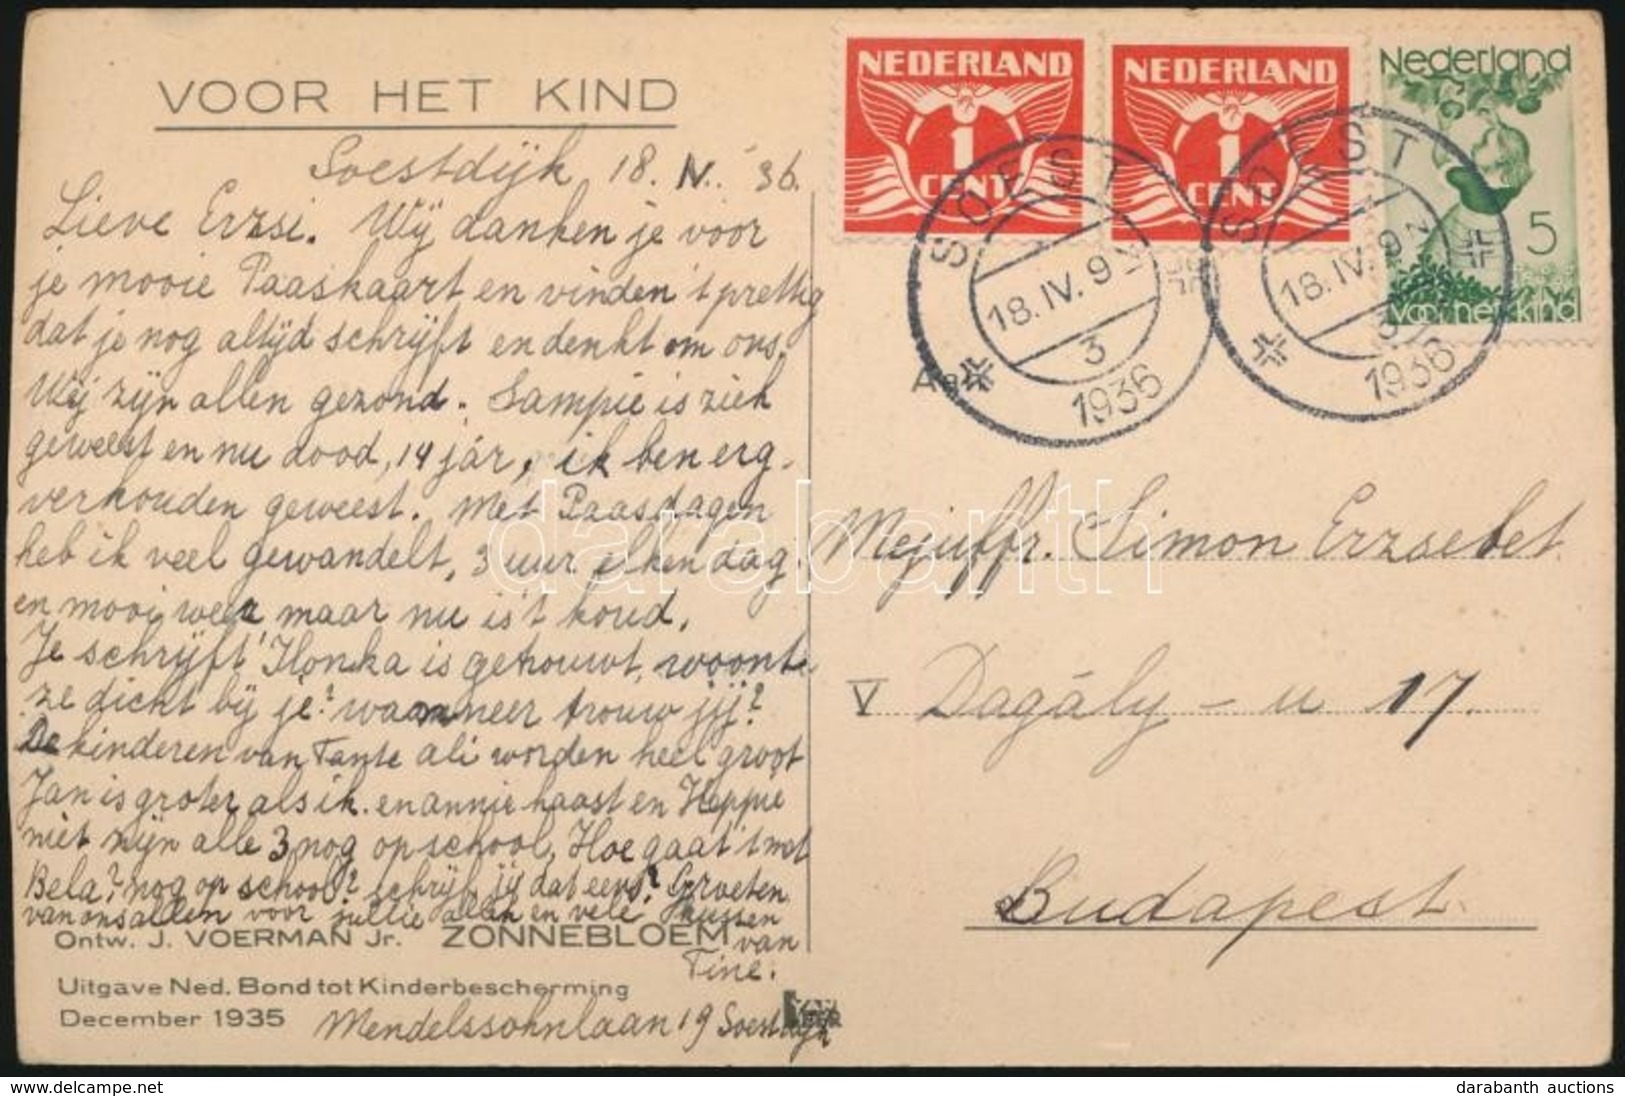 VOOR HET KIND
Soestdijk 18. IV. '36.
Lieve Erzsi. Wij danken je voor
je mooie Paaskaart en vinden 't prettig
dat je nog altijd schrijft en denkt om ons.
Wij zijn allen gezond. Sampie is ziek
geweest en nu dood, 14 jár, ik ben erg
verkouden geweest. Met Paasdagen
heb ik veel gewandelt, 3 uur elken dag
en mooi weer maar nu is 't koud.
Je schrijft Ilonka is getrouwt, woont
ze dicht bij je? wanneer trouw jij?
De kinderen van Tante Ali worden heel groot
Jan is groter als ik. en annie haast en Heppie
niet zijn alle 3 nog op school, Hoe gaat 't met
Bela? nog op school? schrijf jij dat eens? Groeten
van ons allen voor jullie allen en vele kussen
van
Tine.
Ontw. J. VOERMAN Jr. ZONNEBLOEM
Uitgave Ned. Bond tot Kinderbescherming
December 1935
Mendelssohnlaan 19 Soestdijk
NEDERLAND
1
CENT
NEDERLAND
1
CENT
Nederland
5
voor het kind
SOEST
18.IV.9
3
1936
SOEST
18.IV.9
3
1936
Mejuffr. Simon Erzsebet
V Dagály - u 17.
Budapest
darabanth
darabanth auctions